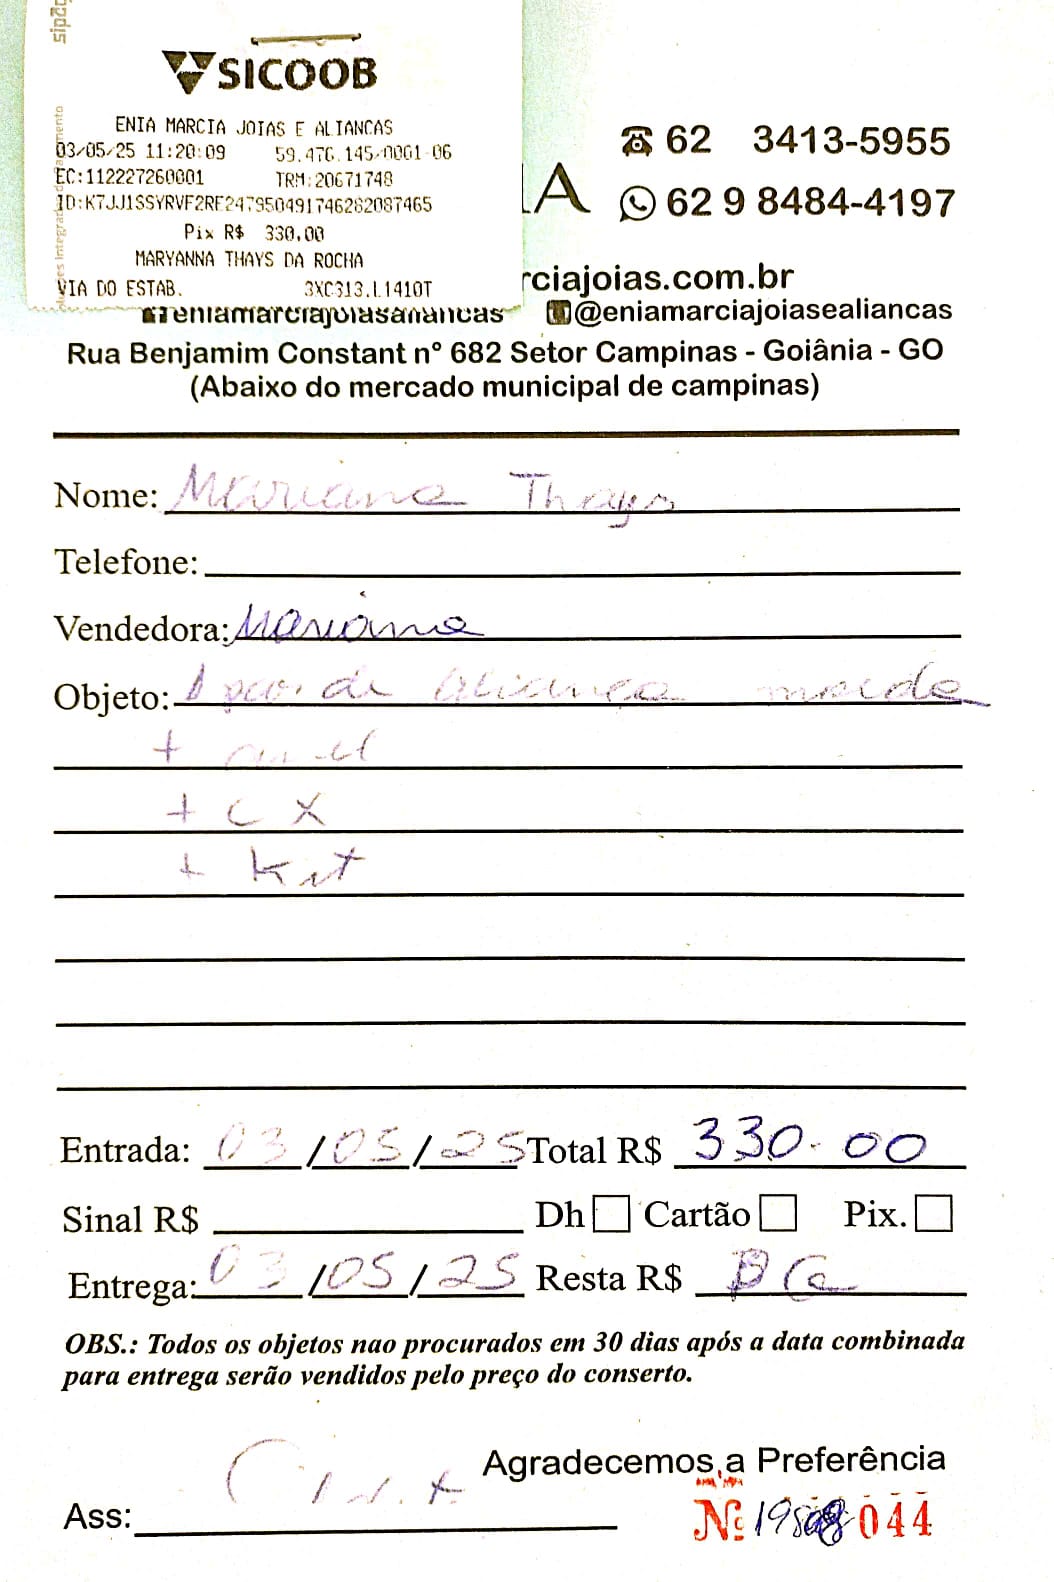 SICOOB
ENIA MARCIA JOIAS E ALIANCAS
03/05/25 11:20:09 59.476.145/0001-06
EC:112227260001 TRM:20671748
ID:K7JJ1SSYRVF2RF247950491746282087465
Pix R$ 330,00
MARYANNA THAYS DA ROCHA
VIA DO ESTAB.
62 3413-5955
A
62 9 8484-4197
rciajoias.com.br
@eniamarciajoiasealiancas
Rua Benjamim Constant nº 682 Setor Campinas - Goiânia - GO
(Abaixo do mercado municipal de campinas)
Nome: Mariana Thays
Telefone:
Vendedora: Mariana
Objeto: 1 par de aliança moeda
+ anel
+ CX
+ Kit
Entrada: 03/05/25 Total R$ 330.00
Sinal R$ Dh Cartão Pix.
Entrega: 03/05/25 Resta R$
OBS.: Todos os objetos nao procurados em 30 dias após a data combinada
para entrega serão vendidos pelo preço do conserto.
Agradecemos a Preferência
Ass:
Nº 044